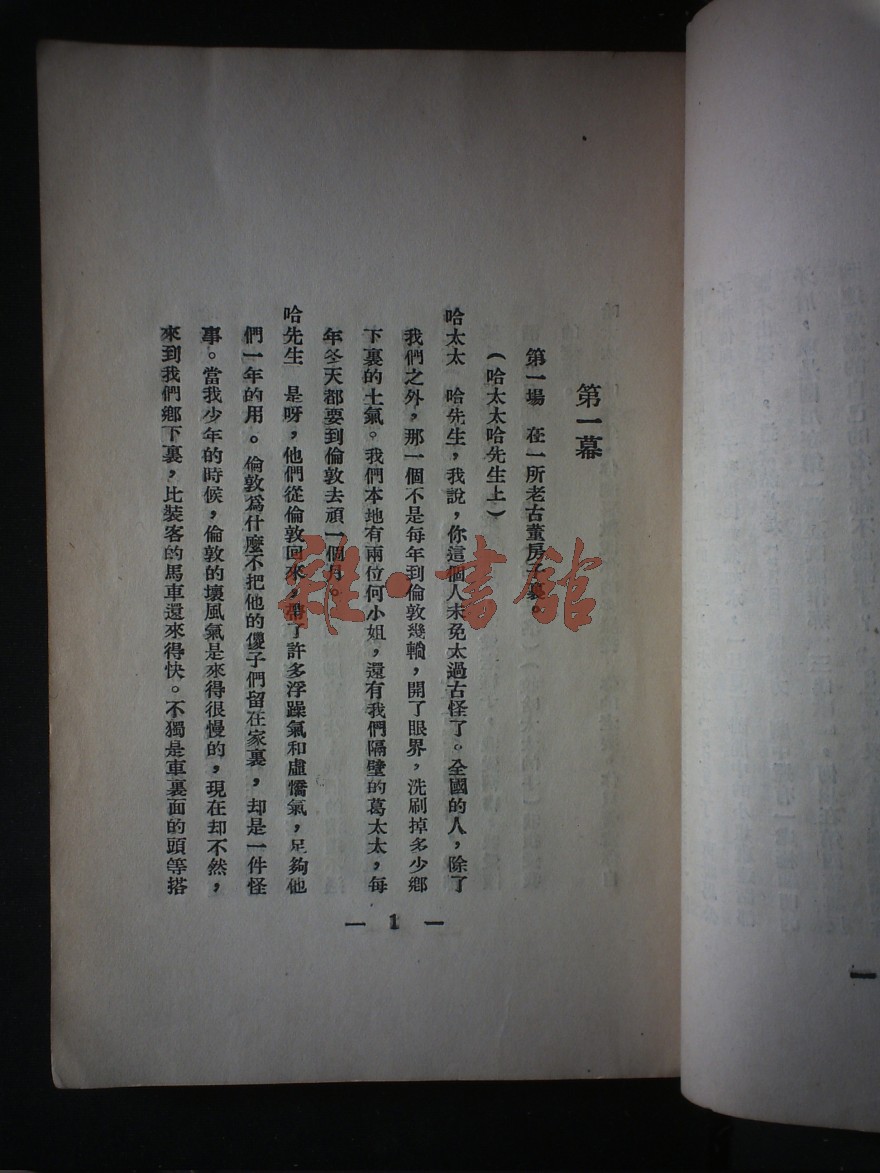 第一幕
第一場　在一所老古董房子裏。
（哈太太哈先生上）
哈太太　哈先生，我說，你這個人未免太過古怪了。全國的人，除了
我們之外，那一個不是每年到倫敦幾輪，開了眼界，洗刷掉多少鄉
下裏的土氣。我們本地有兩位何小姐，還有我們隔壁的葛太太，每
年冬天都要到倫敦去頑一個月。
哈先生　是呀，他們從倫敦回來，帶了許多浮躁氣和虛憍氣，足夠他
們一年的用。倫敦爲什麼不把他的傻子們留在家裏，却是一件怪
事。當我少年的時候，倫敦的壞風氣是來得很慢的，現在却不然，
來到我們鄉下裏，比裝客的馬車還來得快。不獨是車裏面的頭等搭
— 1 —
雜·書館